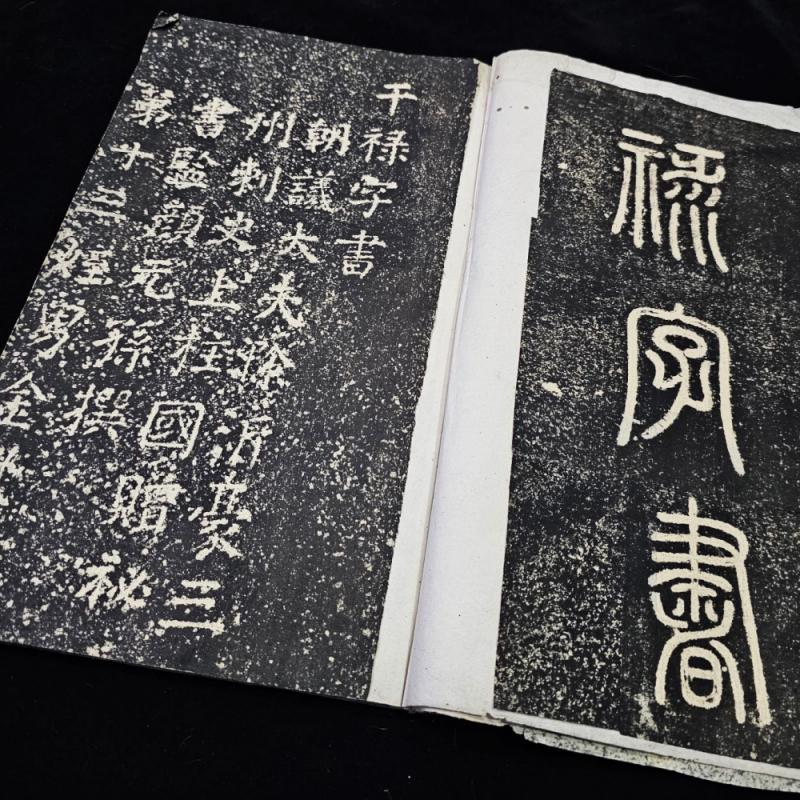 祿字書
干禄字書
朝議大夫滁沂豪三
州刺史上柱國贈秘
書監顔元孫撰
第十三姪男金